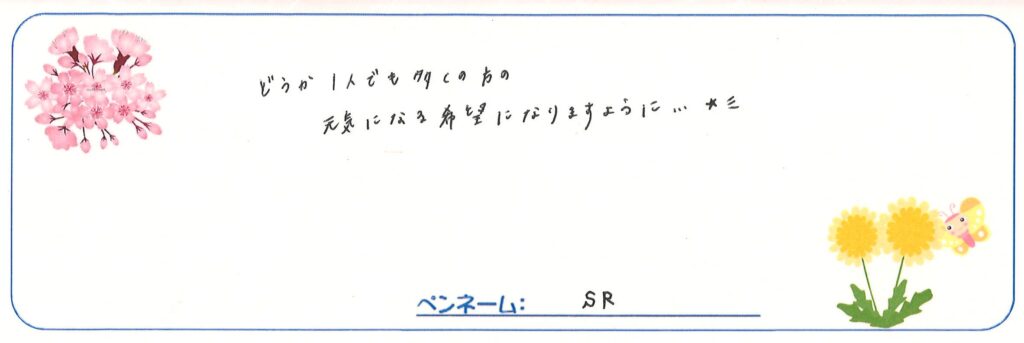 どうか1人でも多くの方の
元気になる希望になりますように… ★彡
ペンネーム: SR